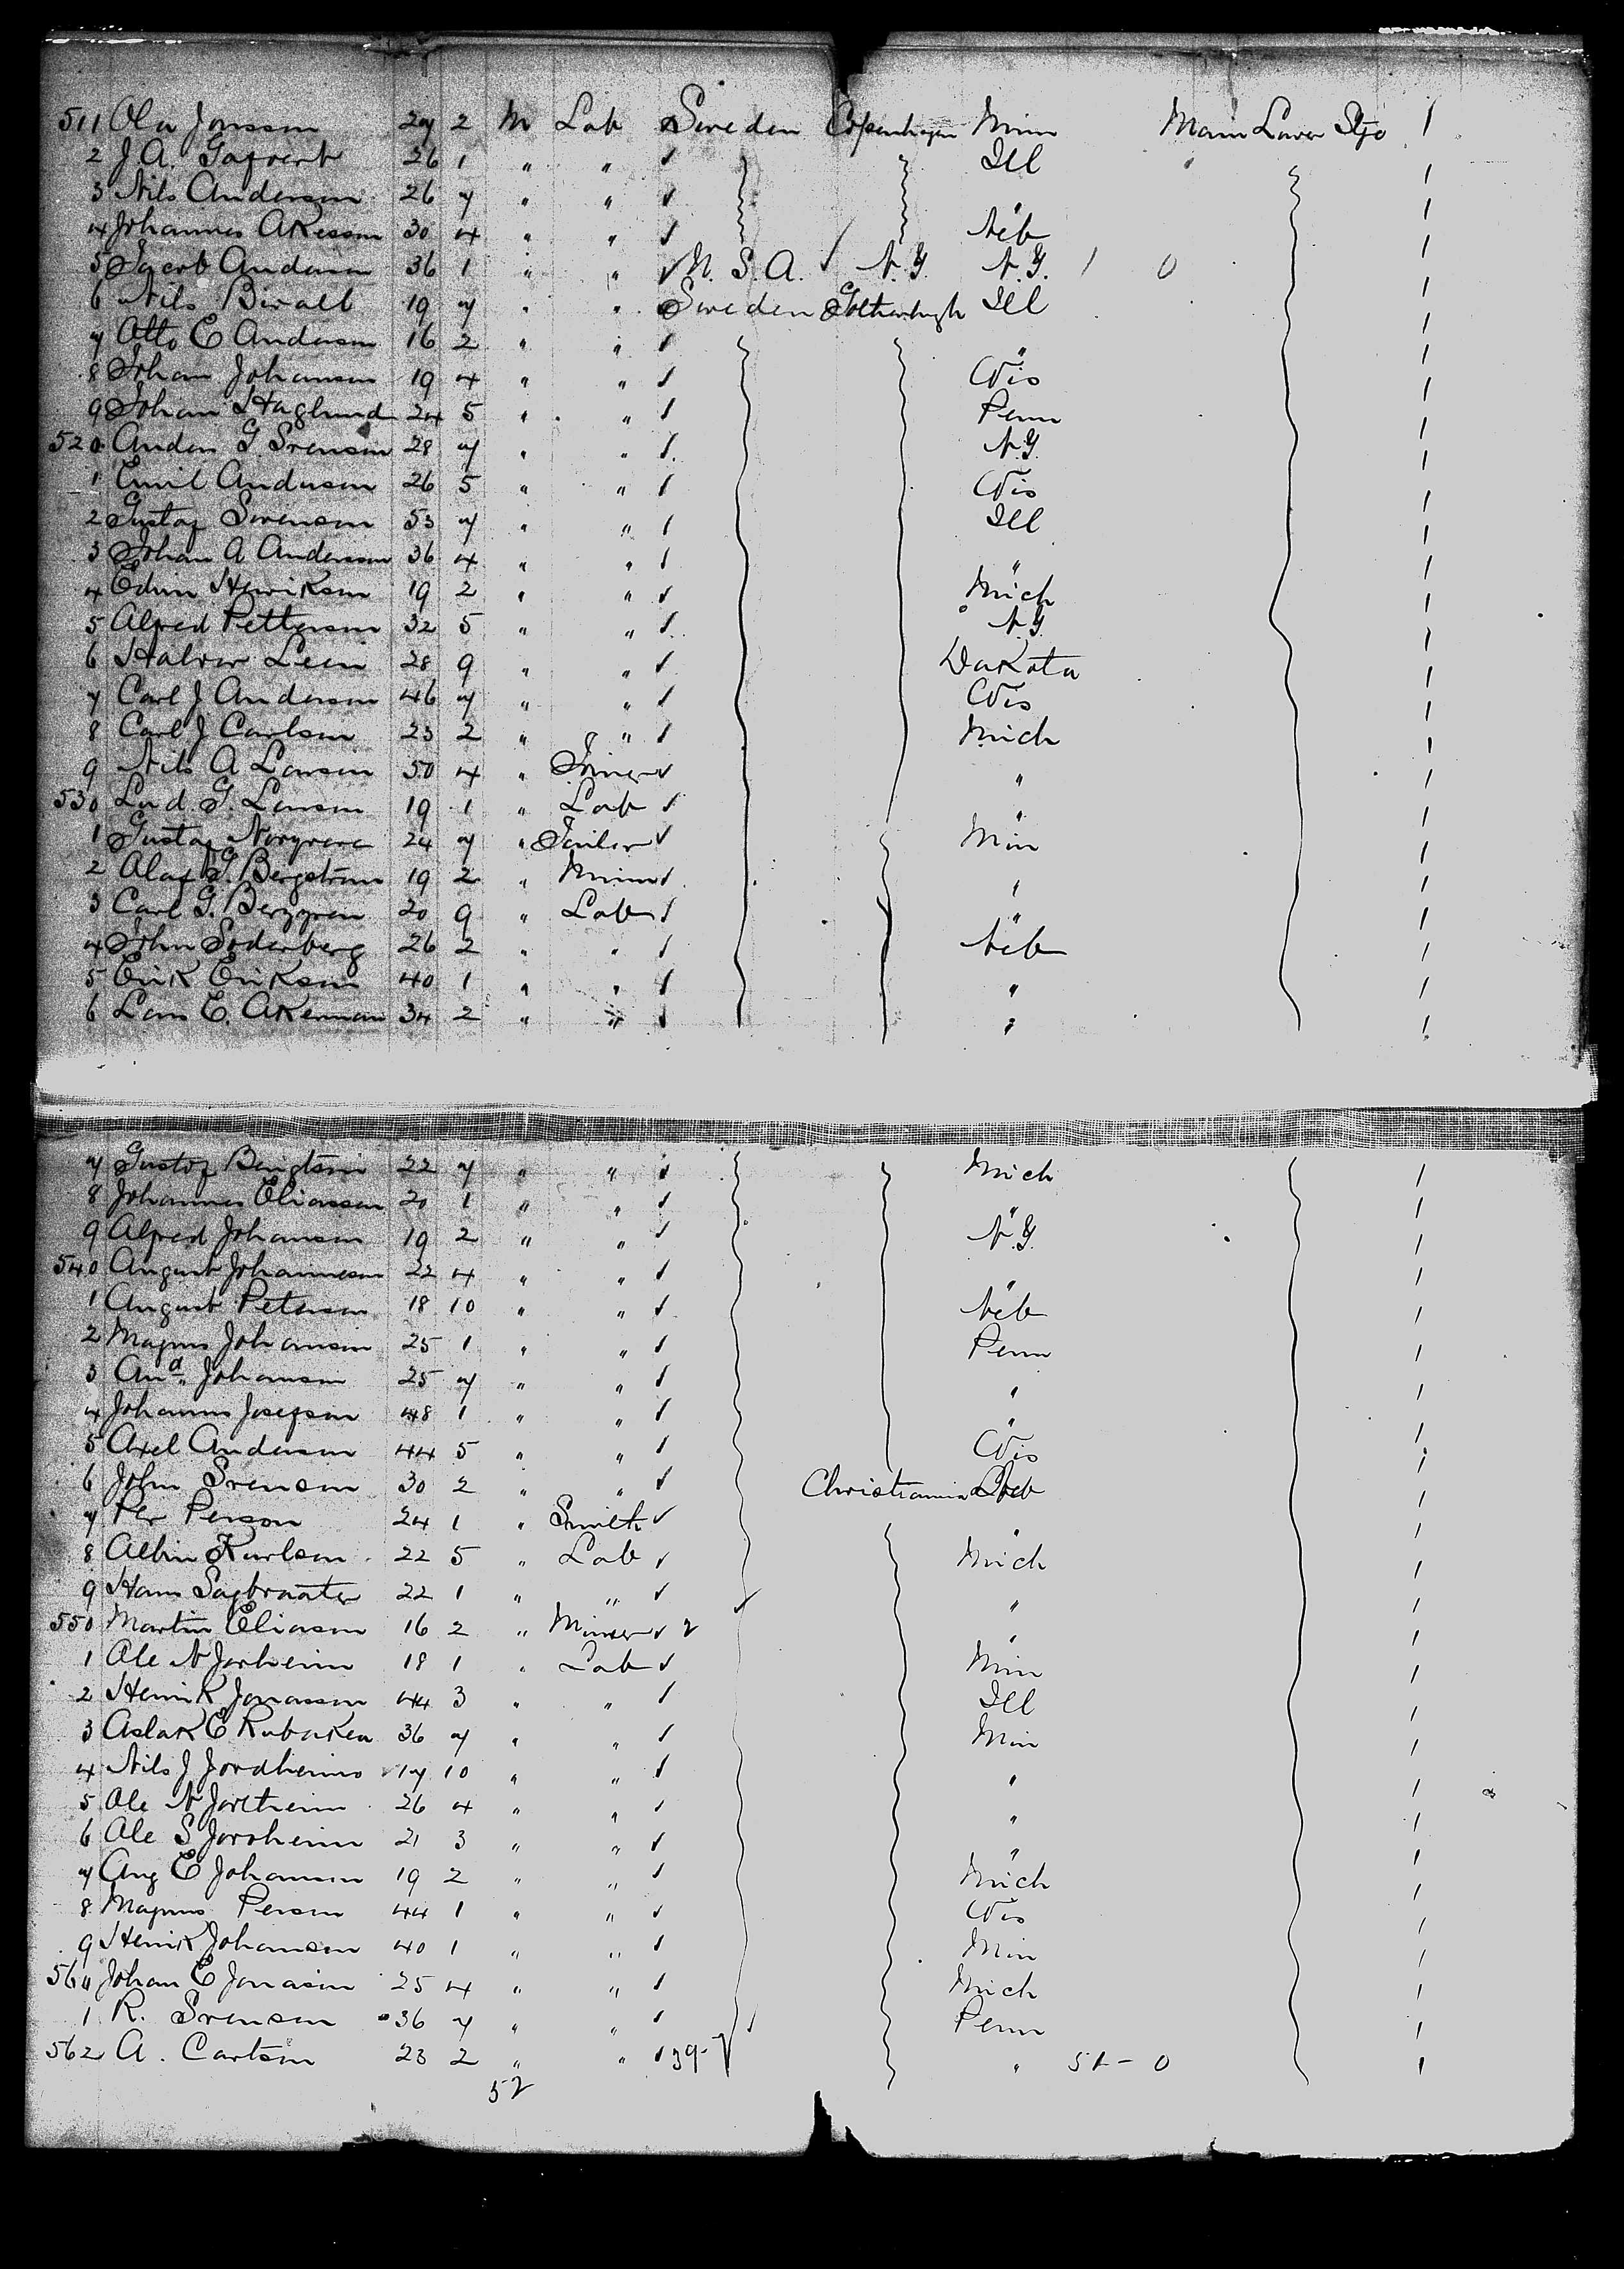 511 Ola Jonsson 27 2 M Lab Sweden Copenhagen Minn Main Lower Stge 1
2 J. A. 26 1 " " Ill 1
3 Nils Anderson 26 7 " " " 1
4 Johannes Akesson 30 4 " " Neb 1
5 Jacob Anderson 36 1 " " U. S. A. N.Y. N.Y. 1 0 1
6 Nils 19 7 " " Sweden Gothenburgh Ill 1
7 Otto E Anderson 16 2 " " " 1
8 Johan Johanson 19 4 " " Wis 1
9 Johan Haglund 24 5 " " Penn 1
520 Anders G. Svenson 28 7 " " N.Y. 1
1 Emil Anderson 26 5 " " Wis 1
2 Gustaf Svenson 53 7 " " Ill 1
3 Johan A Anderson 36 4 " " " 1
4 Edvin Henrikson 19 2 " " Mich 1
5 Alfred Petterson 32 5 " " N.Y. 1
6 Halvor 28 9 " " Dakota 1
7 Carl J Anderson 46 7 " " Wis 1
8 Carl J Carlson 23 2 " " Mich 1
9 Nils A Larson 50 4 " Joiner " 1
530 Lud. G. Larson 19 1 " Lab " 1
1 Gustaf 24 7 " Tailor Min 1
2 Olaf G. Bergstrom 19 2 " Miner " 1
3 Carl G. Berggren 20 9 " Lab " 1
4 John Soderberg 26 2 " " Neb 1
5 Erik Erikson 40 1 " " " 1
6 Lars E. Akerman 34 2 " " " 1
7 Gustaf Bengtson 22 7 " " Mich 1
8 Johannes Eliasson 20 1 " " " 1
9 Alfred Johanson 19 2 " " N.Y. 1
540 August Johanneson 22 4 " " " 1
1 August Peterson 18 10 " " Neb 1
2 Magnus Johanson 25 1 " " Penn 1
3 And. Johanson 25 7 " " " 1
4 Johannes Josefson 48 1 " " " 1
5 Axel Anderson 44 5 " " Wis 1
6 John Svenson 30 2 " " Christiania Neb 1
7 Per Person 24 1 " Smith " 1
8 Albin Karlson 22 5 " Lab Mich 1
9 Hans Sagbraaten 22 1 " " " 1
550 Martin Eliason 16 2 " Miner " 1
1 Ole N 18 1 " Lab Min 1
2 Henrik Jonasson 44 3 " " Ill 1
3 Aslak E 36 7 " " Min 1
4 Nils J Jordheim 17 10 " " " 1
5 Ole N 26 4 " " " 1
6 Ole S 21 3 " " " 1
7 Aug E Johanson 19 2 " " Mich 1
8 Magnus Person 44 1 " " Wis 1
9 Henrik Johanson 40 1 " " Min 1
560 Johan E Jonason 25 4 " " Mich 1
1 R. Svenson 36 7 " " Penn 1
562 A. Carlson 23 2 " " 39 " 51 - 0 1
52